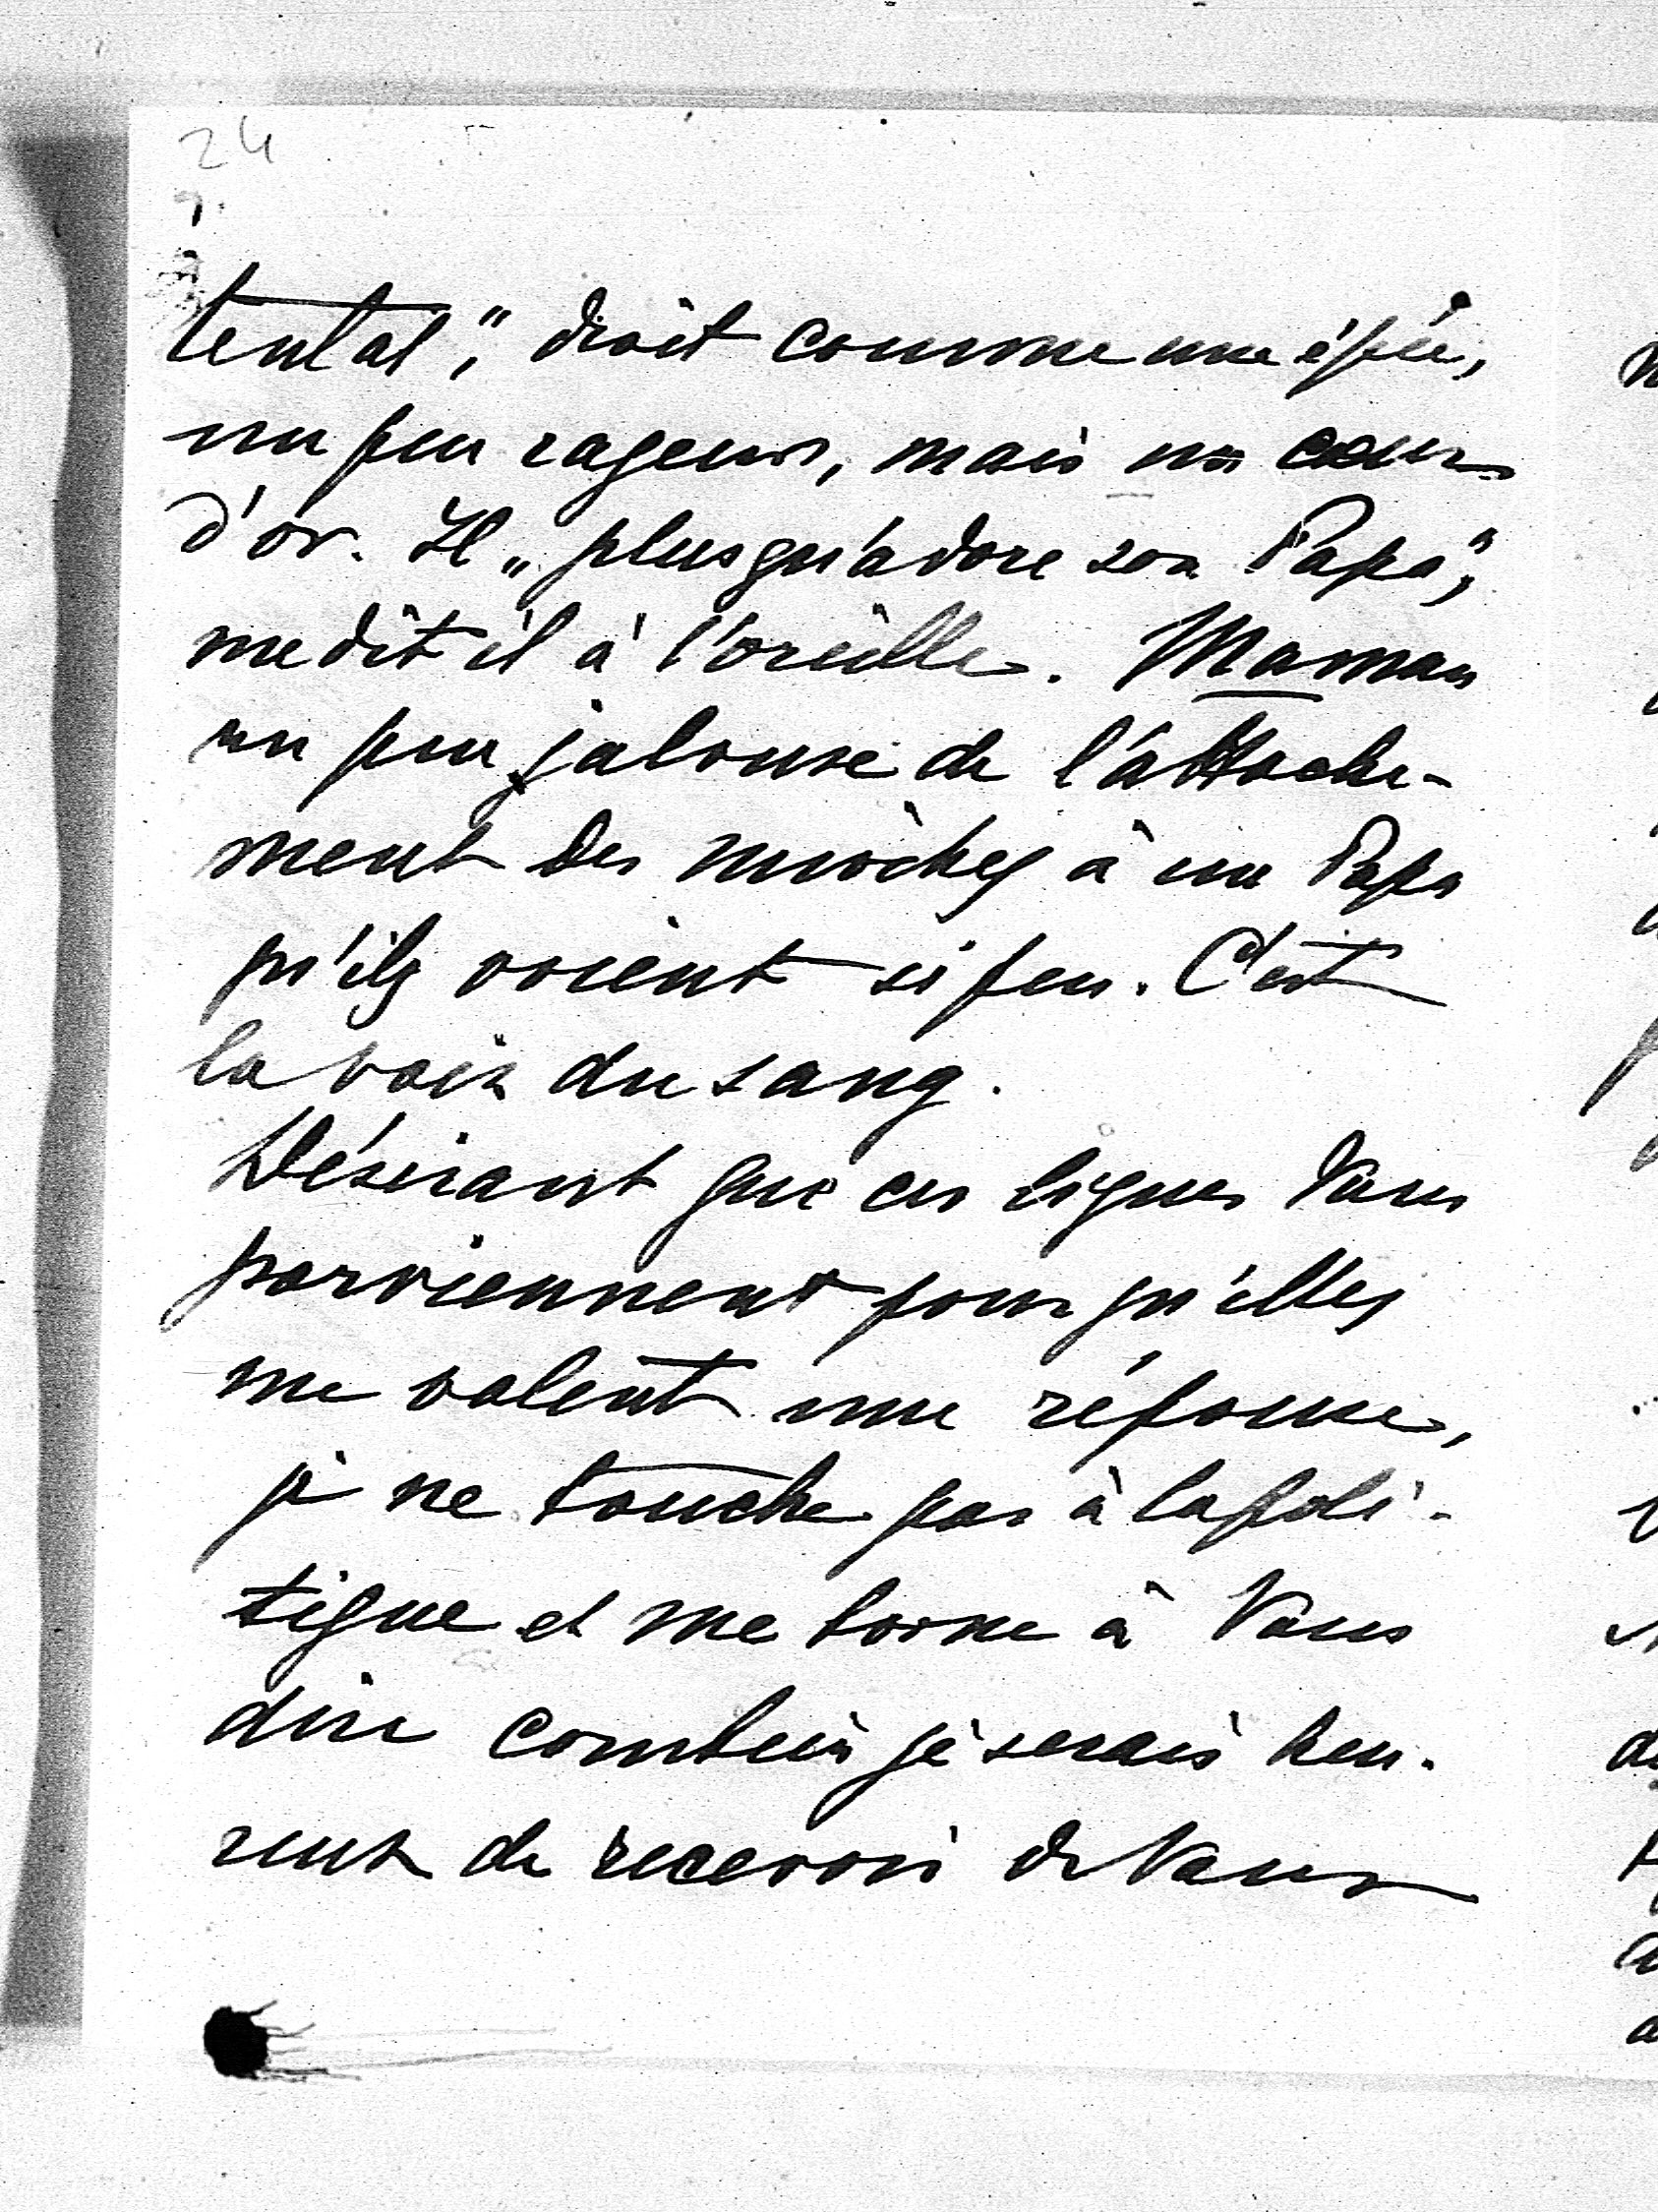 24
tental", droit comme une épée,
un peu rageur, mais un cœur
d'or. Il „plus qu'adore son Papa",
me dit il à l'oreille. Maman
un peu jalouse de l'attache-
ment des mioches à un Papa
qu'ils voient si peu. C'est
la voix du sang.
Désirant que ces lignes Vous
parviennent pour qu'elles
me valent une réponse,
je ne touche pas à la poli-
tique et me borne à Vous
dire combien je serais heu-
reux de recevoir de Vous